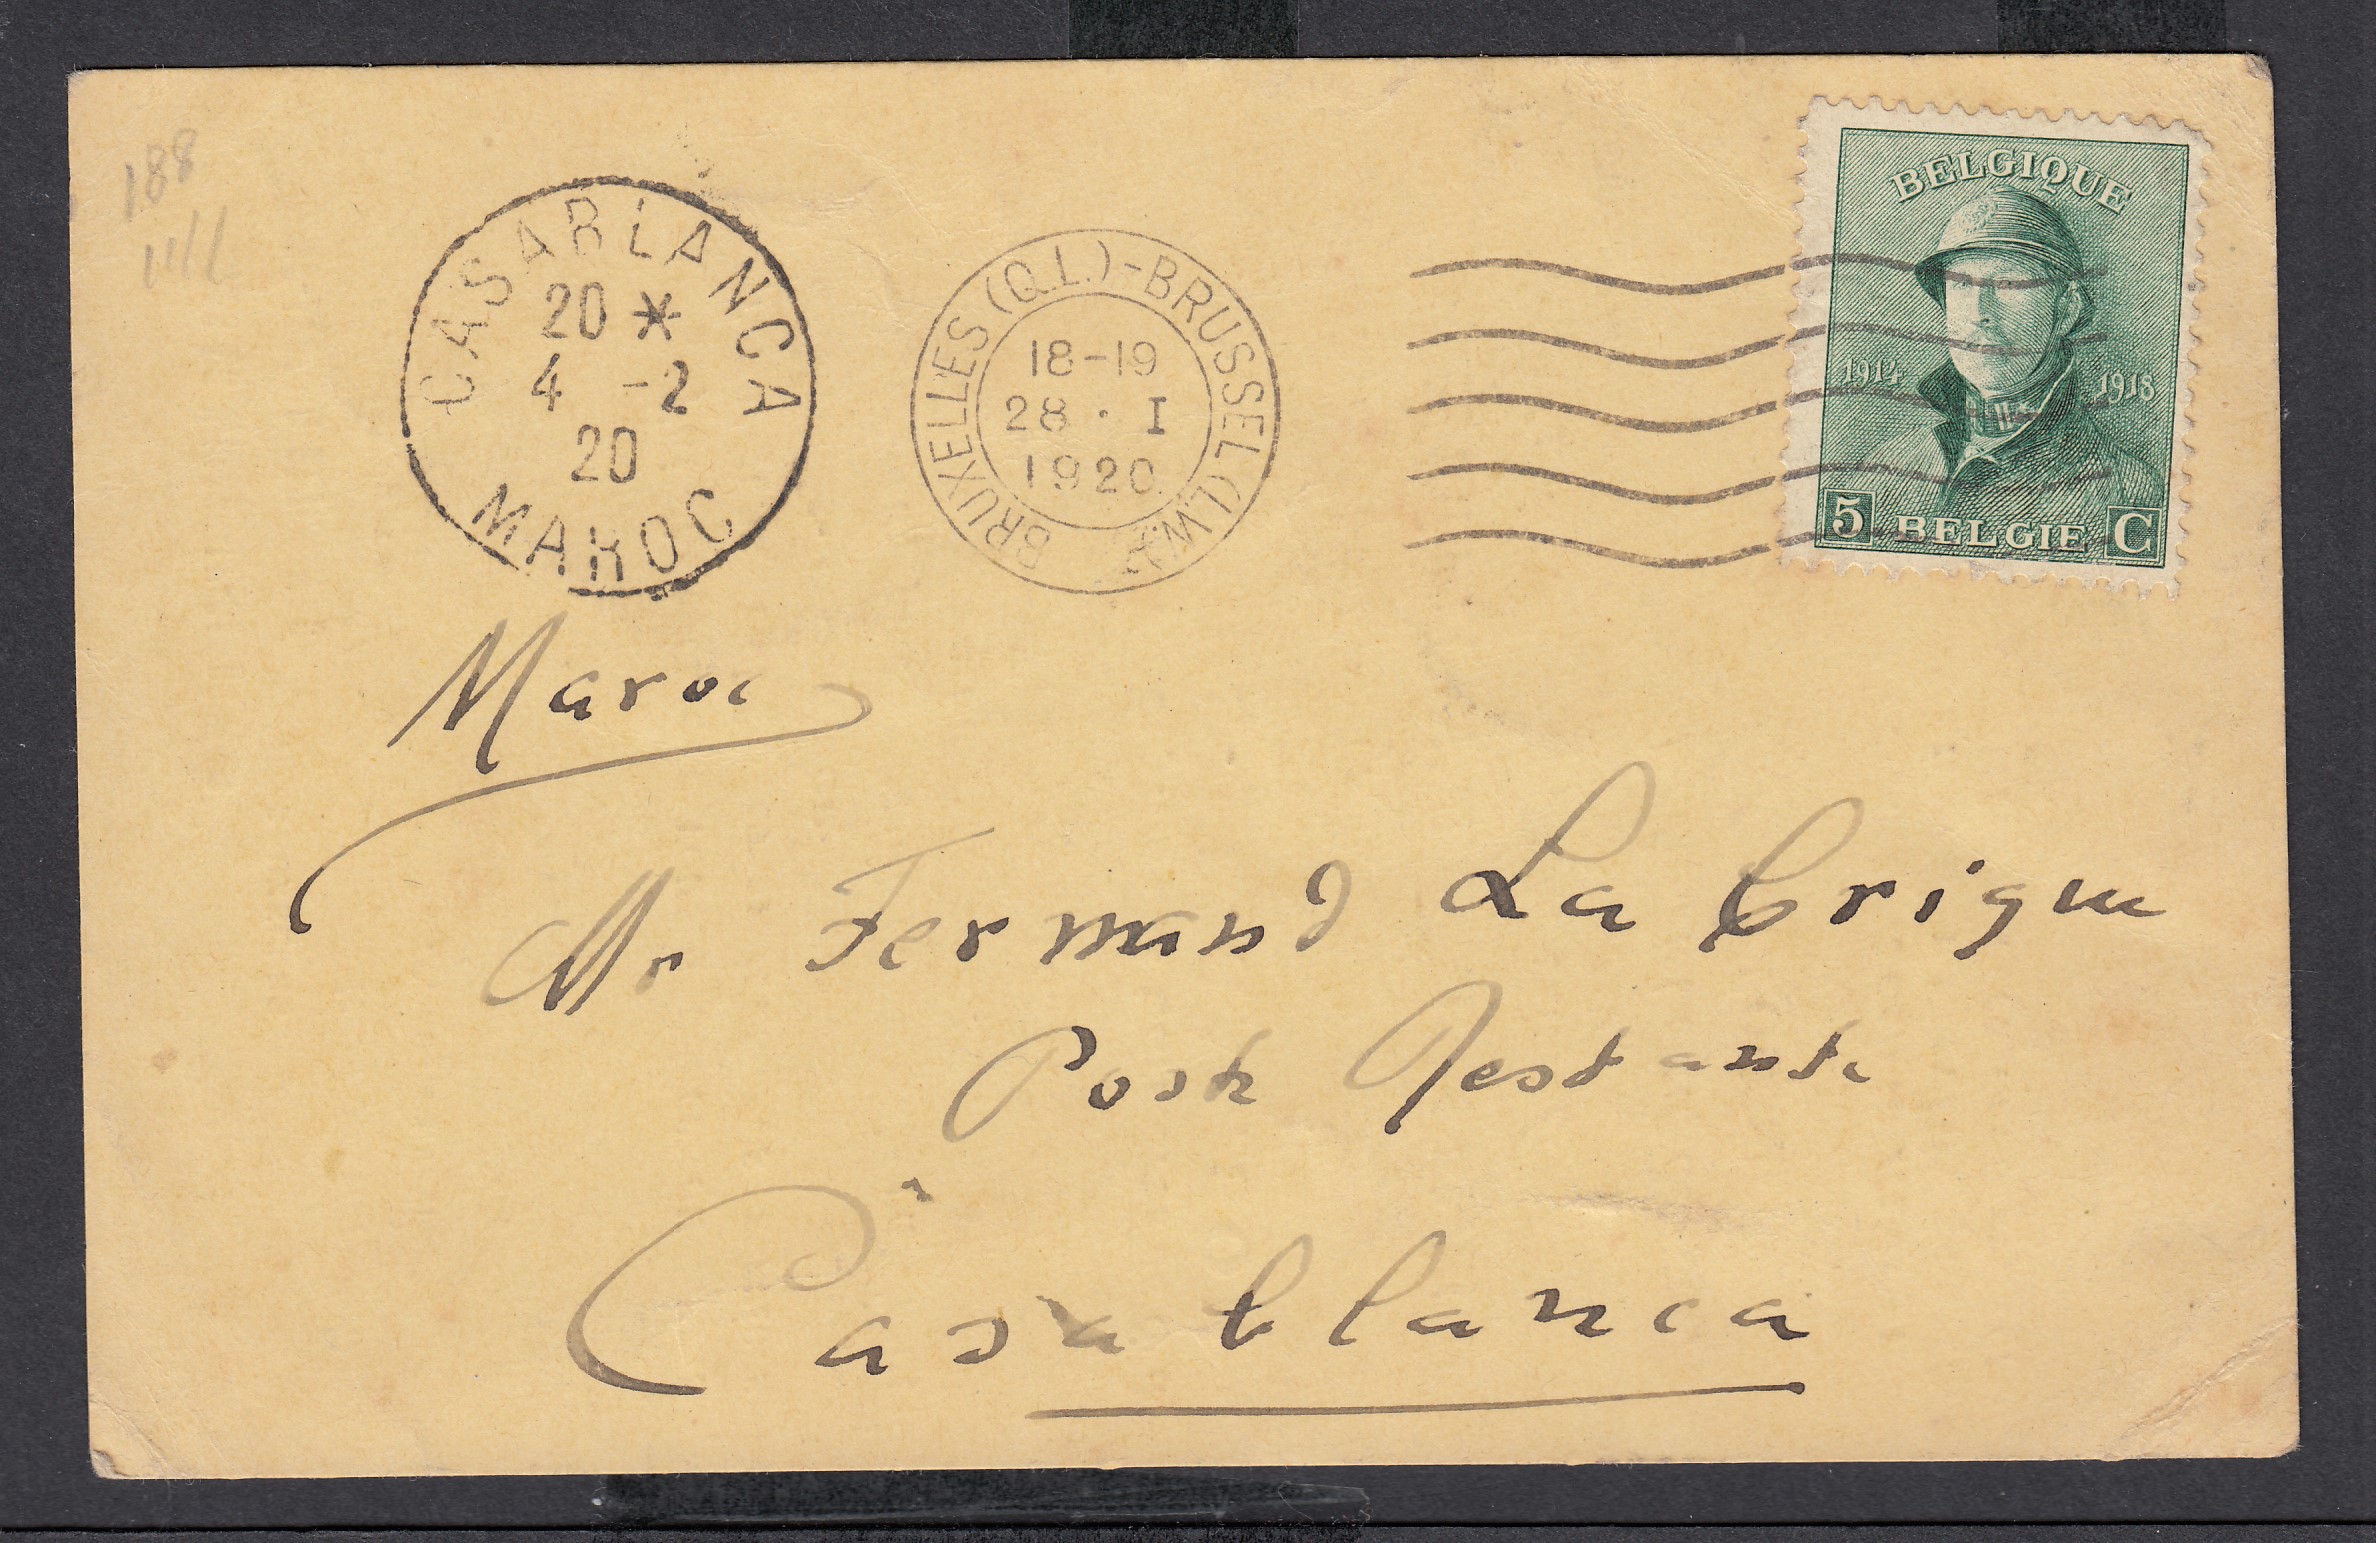 188
CASABLANCA
20 *
4 -2
20
MAROC
BRUXELLES (Q.L.) - BRUSSEL (L.W.)
18-19
28 · I
1920
BELGIQUE
1914 1918
5 BELGIE C
Maroc
Mr Fernand La Crique
Poste Restante
Casablanca